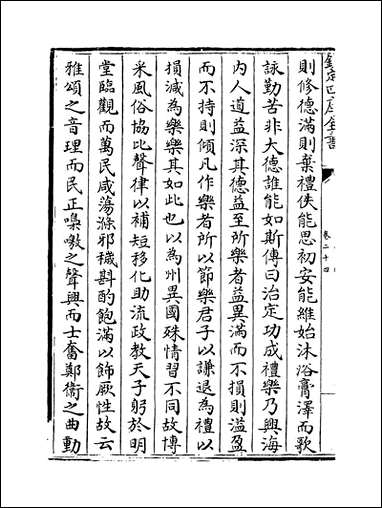 欽定四庫全書
卷二十四
則修德滿則棄禮佚能思初安能維始沐浴膏澤而歌
詠勤苦非大德誰能如斯傳曰治定功成禮樂乃興海
内人道益深其德益至所樂者益異滿而不損則溢盈
而不持則傾凡作樂者所以節樂君子以謙退為禮以
損減為樂樂其如此也以為州異國殊情習不同故博
采風俗協比聲律以補短移化助流政教天子躬於明
堂臨觀而萬民咸蕩滌邪穢斟酌飽滿以飾厥性故云
雅頌之音理而民正嘄噭之聲興而士奮鄭衛之曲動